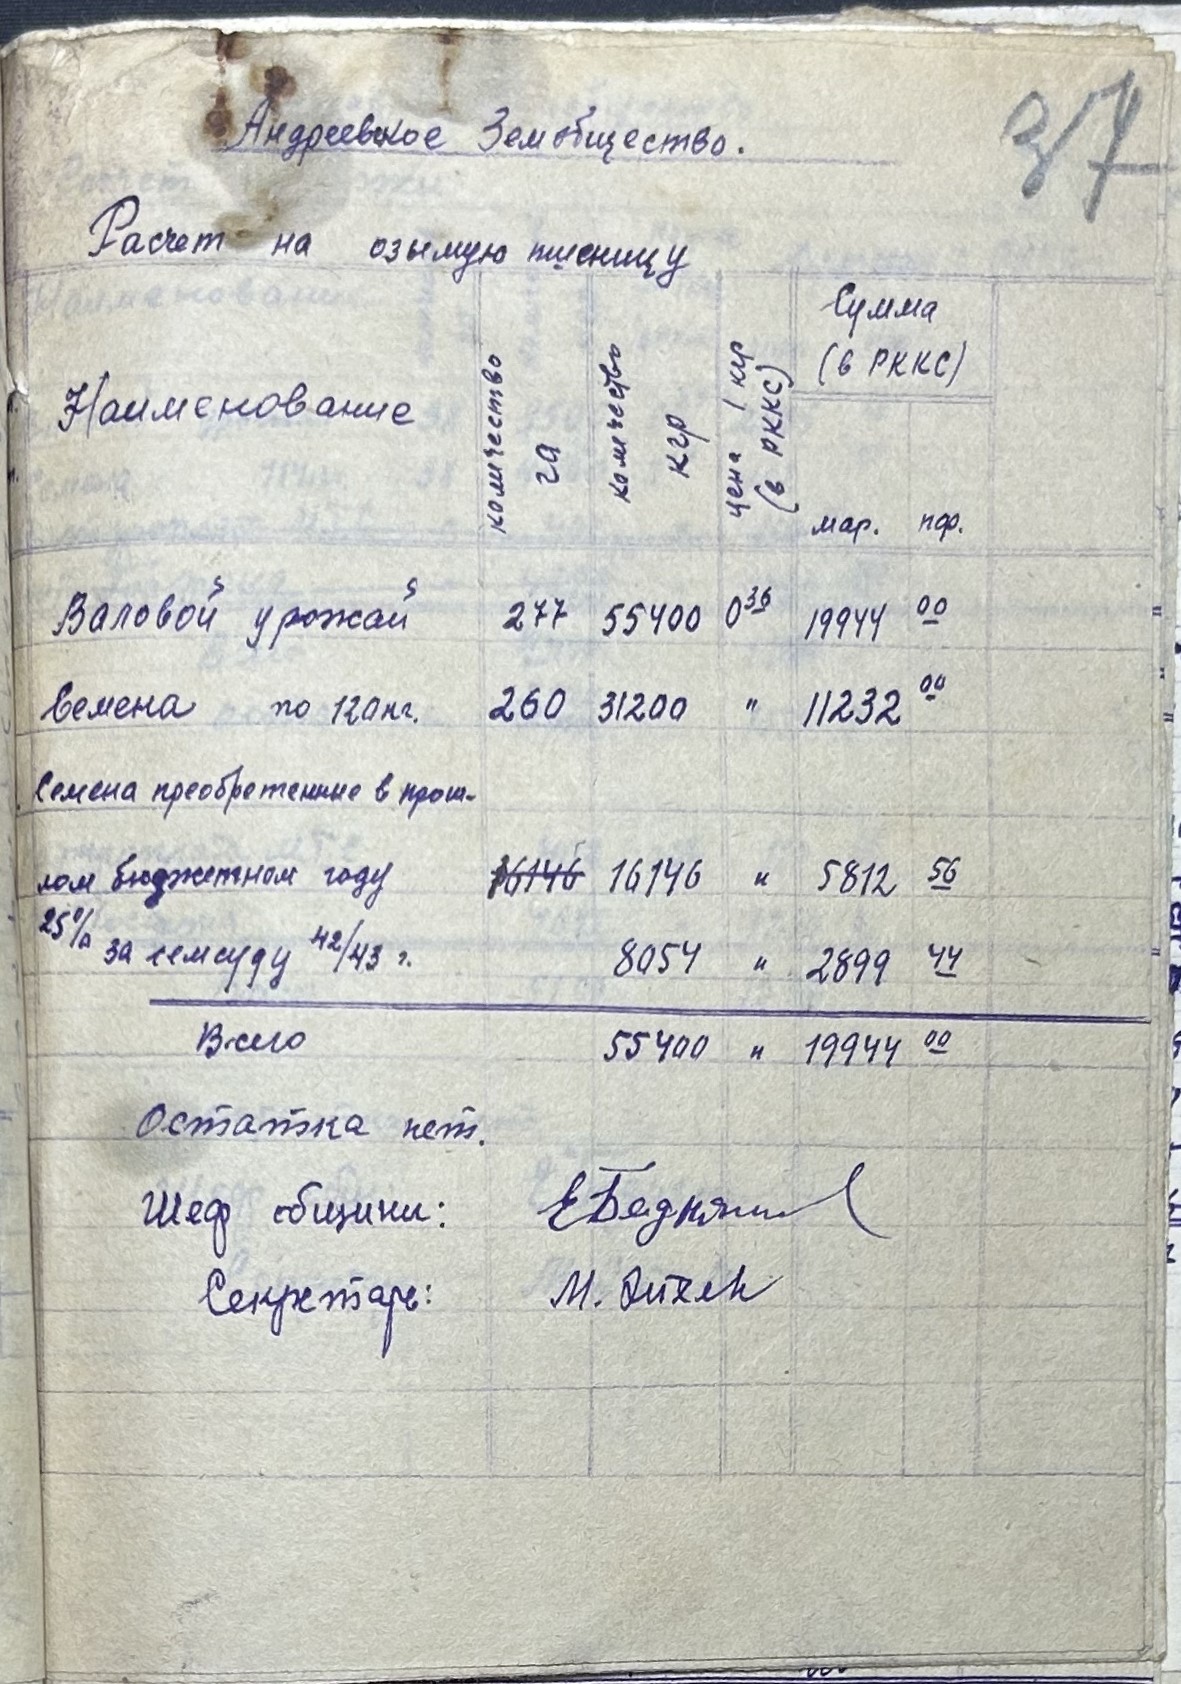 37
Андреевское Земобщество.
Расчет на озымую пшеницу
Наименование количество га количество кгр цена 1 кгр (в РККС) Сумма (в РККС)
мар. пф.
Валовой урожай 277 55400 0 36 19944 00
Семена по 120 кг. 260 31200 " 11232 00
Семена преобретенные в прош-
лом бюджетном году 16146 16146 " 5812 56
25% за семсуду 42/43 г. 8054 " 2899 44
Всего 55400 " 19944 00
Остатка нет.
Шеф общини:
Секретарь: М.